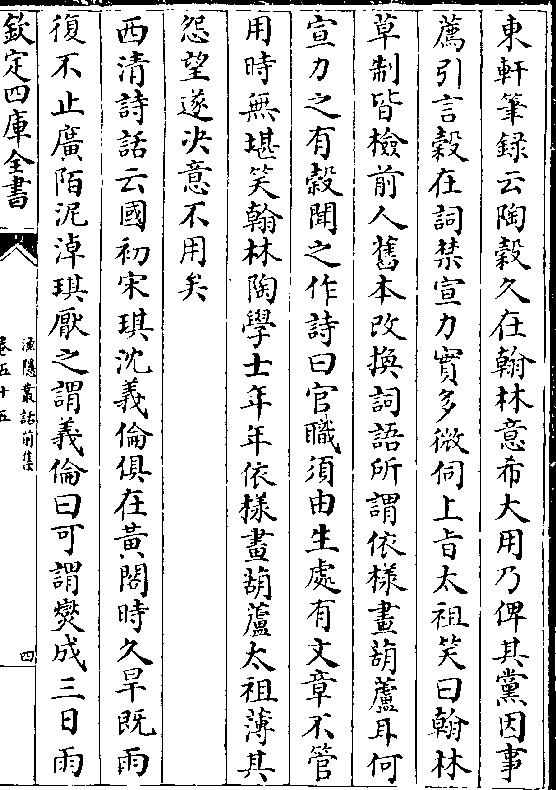 東軒筆録云陶穀久在翰林意希大用乃俾其黨因事
薦引言穀在詞禁宣力實多微伺上㫖太祖笑曰翰林
草制皆檢前人舊本改換詞語所謂依樣畫葫蘆耳何
宣力之有穀聞之作詩曰官職須由生處有文章不管
用時無堪笑翰林陶學士年年依樣畫葫蘆太祖薄其
怨望遂決意不用矣
西清詩話云國初宋琪沈義倫俱在黃閤時久旱既雨
復不止廣陌泥淖琪厭之謂義倫曰可謂燮成三日雨
欽定四庫全書
漁隱叢話前集
卷五十五
四